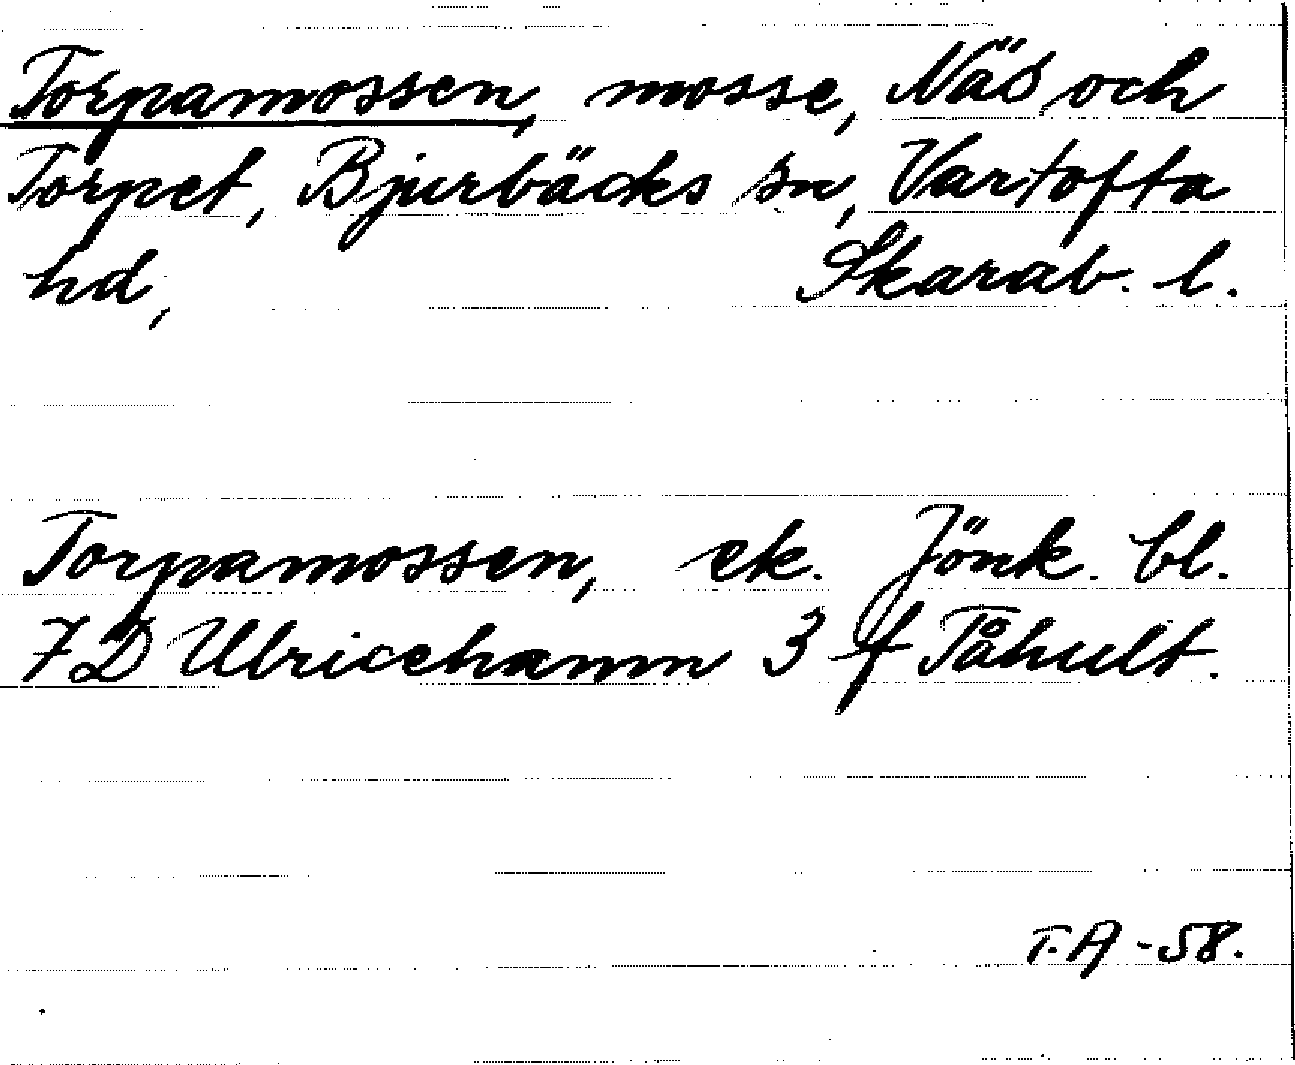 Torpamossen, mosse, Näs och
Torpet, Bjurbäcks sn, Vartofta
hd, Skarab. l.
Torpamossen, ek. Jönk. bl.
7D Ulricehamn 3 f Tåhult.
T.A -58.